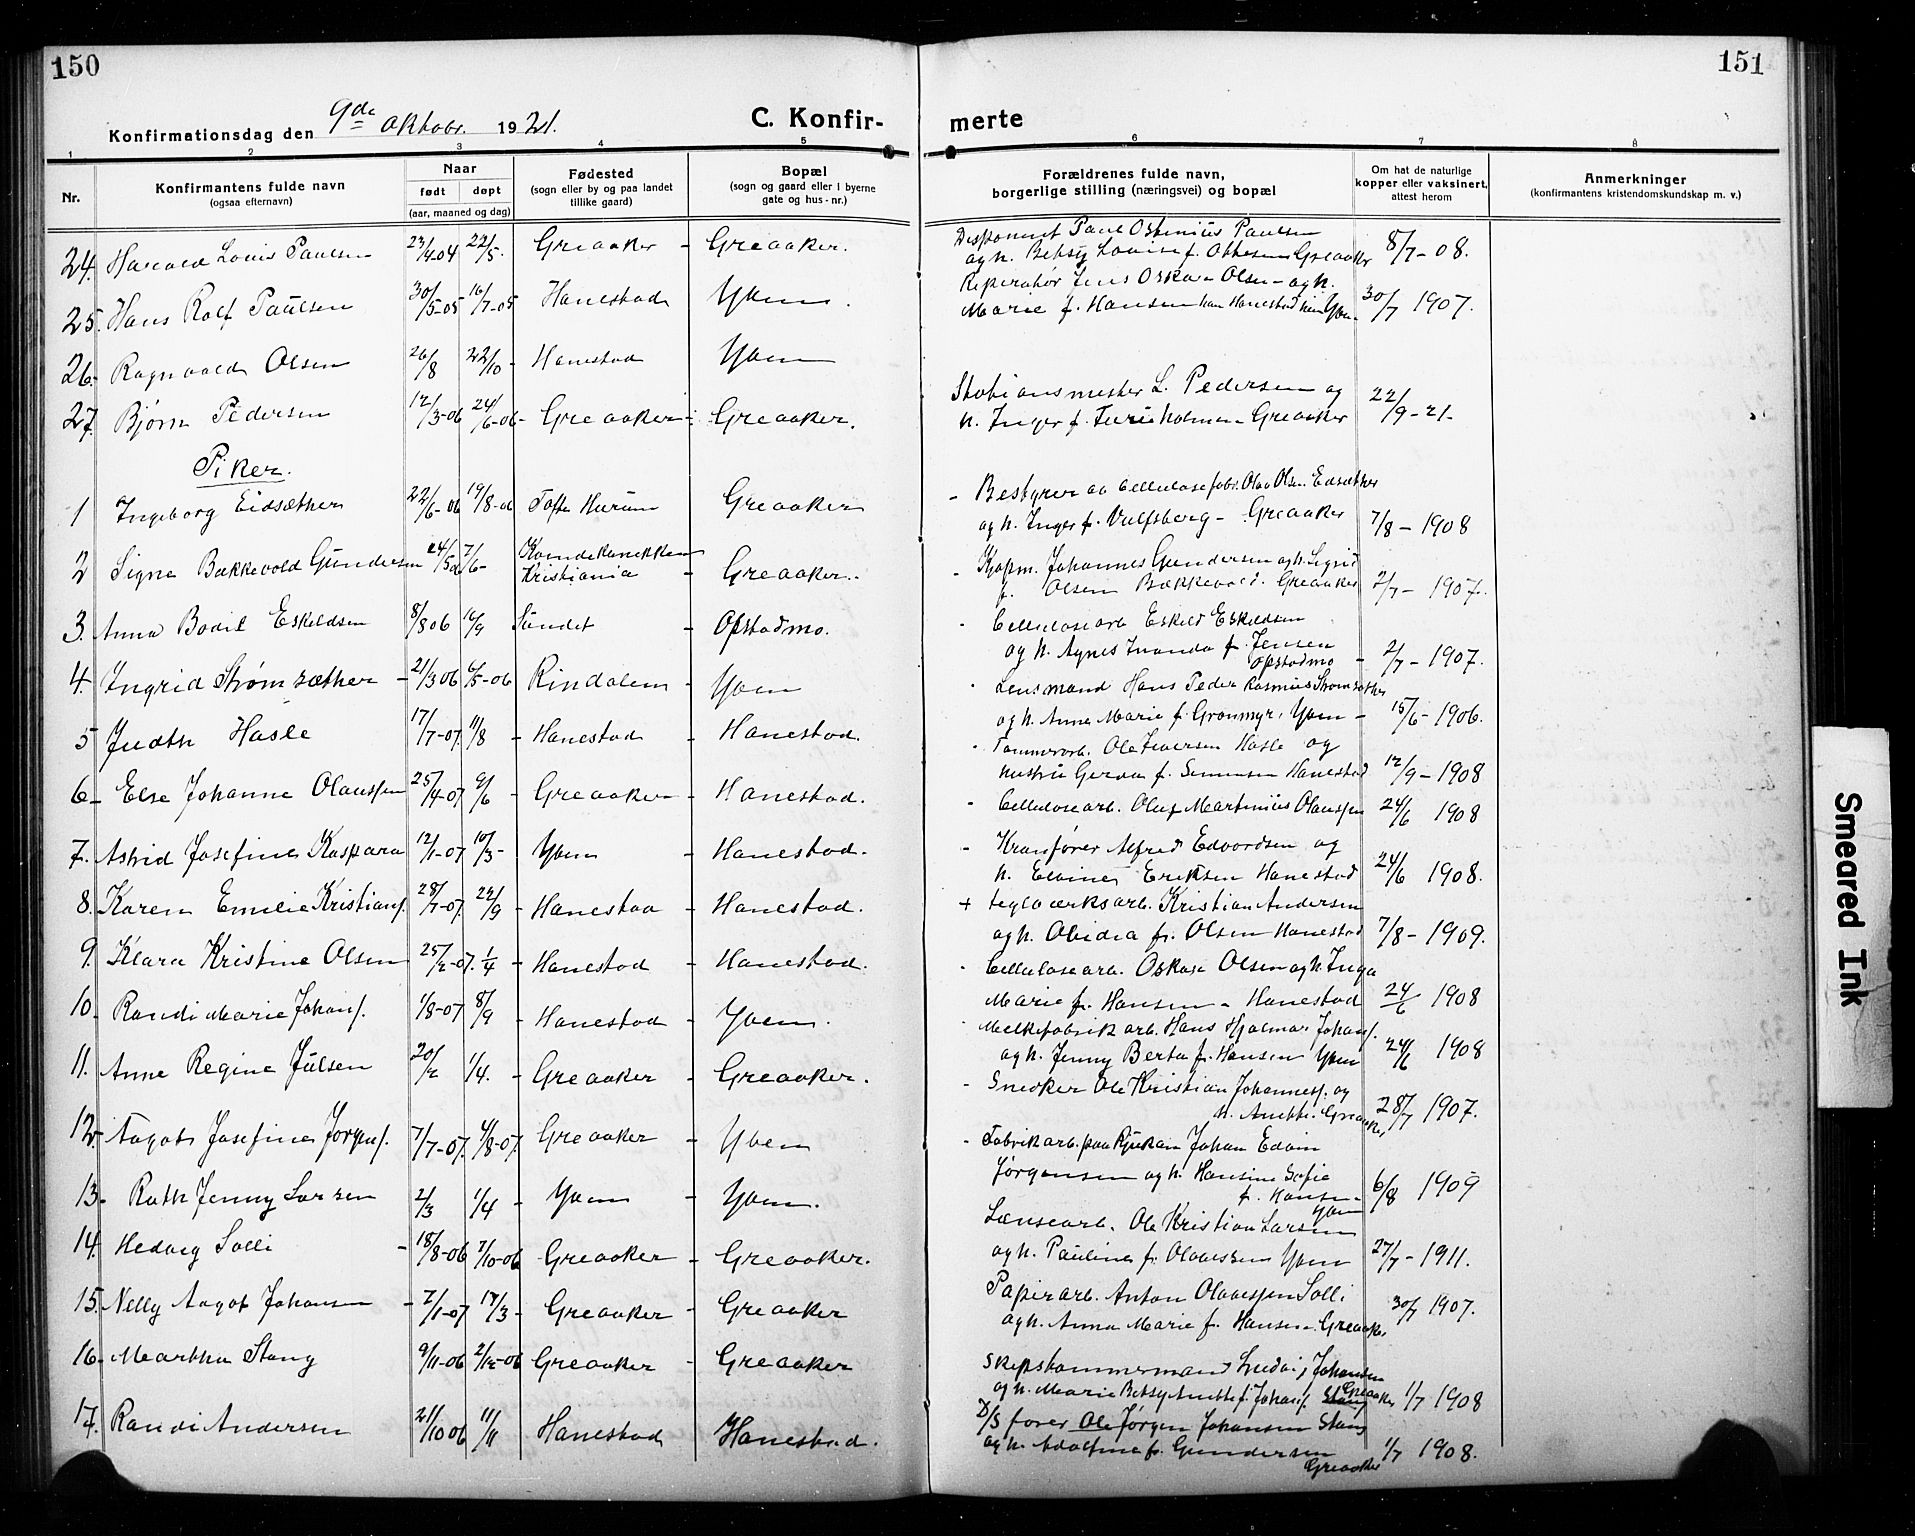 150
151
Konfirmationsdag den 9de Oktobr. 1921.
C. Konfirmerte
1 2 3 4 5 6 7 8
Nr.
Konfirmantens fulde navn
(ogsaa efternavn)
Naar
født døpt
(aar, maaned og dag)
Fødested
(sogn eller by og paa landet
tillike gaard)
Bopæl
(sogn og gaard eller i byerne
gate og hus-nr.)
Forældrenes fulde navn,
borgerlige stilling (næringsvei) og bopæl
Om hat de naturlige
kopper eller vaksinert,
attest herom
Anmerkninger
(konfirmantens kristendomskundskap m. v.)
24. Harald Louis Paulsen 23/4-04 22/5. Greaaker - Greaaker.
Disponent Paul Ostinius Paulsen
og h. Betsy Louise f. Ottesen Greaaker 8/7-08.
25. Hans Rolf Paulsen 30/5-05 16/7-05 Hanestad Yven.
Reperatør Jens Oskar Olsen og h.
Marie f. Hansen han Hanestad hun Yven 30/7 1907.
26. Ragnvald Olsen 26/8 22/10 - Hanestad Yven
27. Bjørn Pedersen 12/3-06 24/6-06 - Greaaker - Greaaker.
Stationsmester L. Pedersen og
h. Inger f. Furuholmen Greaaker 22/9-21.
Piker.
1 Ingeborg Eidsæther 22/6-06 19/8-06 Tofte Hurum Greaaker
- Bestyrer av Cellulosefabr. Olav Olsen Eidsæther
og h. Inger f. Vulfsberg - Greaaker 7/8-1908
2 Signe Bakkevold Gundersen 24/5-06 7/6- Kristiania - Greaaker.
- Kjøpm. Johannes Gundersen og h. Sigrid
f. Olsen Bækkevold. Greaaker 2/7-1907.
3. Anna Bodil Eskildsen 8/8 06 16/9 Sundet - Opstadmo.
- Cellulosearb Eskild Eskildsen
og h. Agnes Irvanda f. Jensen
Opstadmo - 2/7-1907.
4. Ingrid Strømsæther - 21/3 06 6/5-06 Rindalen - Yven
- Lensmand Hans Peder Rasmus Strømsæther
og h. Anna Marie f. Grønmyr, Yven - 15/6-1906.
5 Judith Hasle 17/7-07. 11/8 - Hanestad - Hanestad.
- Tømmerarb. Ole Iversen Hasle og
hustru Gerda f. Simensen Hanestad 12/9-1908
6- Else Johanne Olaussen 25/4-07 9/6 - Greaaker - Hanestad.
- Cellulosearb. Oluf Martinius Olaussen 24/6 1908
7. Astrid Josefine Kaspara 12/1-07 10/3- Yven - Hanestad.
- Kranfører Alfred Edvardsen og
h. Elvine Eriksen Hanestad 24/6 1908.
8. Karen Emilie Kristians. 28/7-07. 22/9 - Hanestad - Hanestad.
+ teglværksarb. Kristian Andersen
og h. Obidia f. Olsen Hanestad 7/8-1909.
9. Klara Kristine Olsen 25/2-07. 1/4 - Hanestad - Hanestad.
- Cellulosearb. Oskar Olsen og h. Inga
Marie f. Hansen - Hanestad 24/6 1908
10. Randi Marie Johans. 1/8-07 8/9 - Hanestad - Yven.
- Melkefabrikarb. Hans Hjalmar Johans.
og h. Jenny Berta f. Hansen Yven 24/6 1908
11. Anne Regine Julsen 20/2 1/4. - Greaaker - Greaaker.
- Snedker Ole Kristian Johannes. og
h. Anetti. Greaaker 28/7 1907.
12. Aagot Josefine Jørgens. 7/7-07. 4/8-07. Greaaker - Yven
- Fabrikarb. paa Rjukan Johan Edvin
Jørgensen og h. Hansine Sofie
f. Hansen Yven 6/8 1909
13. Ruth Jenny Larsen 2/3 1/4 - Yven - Yven.
Lænsearb. Ole Kristian Larsen
og h. Pauline f. Olaussen Yven 27/7-1911.
14. Hedvig Solli - 18/8-06 7/10-06 Greaaker - Greaaker.
Papirarb. Anton Olaussen Solli
og h. Anna Marie f. Hansen. Greaaker 30/7 1907.
15. Nelly Aagot Johansen - 2/1-07 17/3- Greaaker - Greaaker
Skipstømmermand Ludvig Johansen
og h. Marie Betsy Anette f. Johans. Stang Greaaker 1/7 1908
16. Martha Stang 9/11-06 2/12-06 Greaaker - Greaaker
D/S fører Ole Jørgen Johansen Stang
og h. Adolfine f. Gundersen
Greaaker 1/7 1908.
17. Randi Andersen 21/10 06 11/11 Hanestad - Hanestad.
Smeared Ink